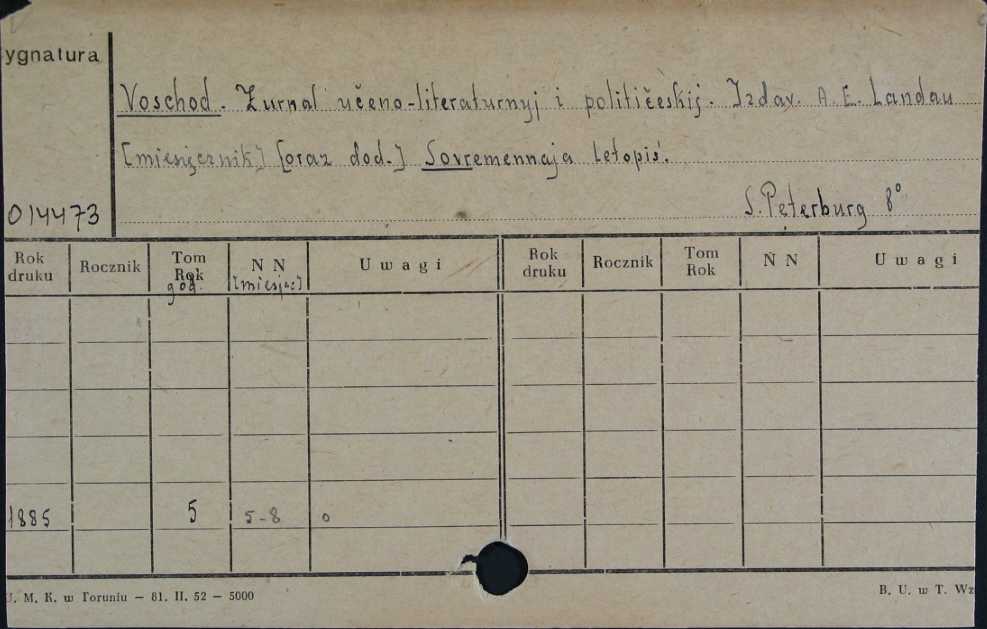 ygnatura
Voschod. Žurnal učeno-literaturnyj i političeskij. Izdav. A. E. Landau
[miesięcznik] [oraz dod.] Sovremennaja letopiś.
014473
S. Peterburg 8°
Rok druku Rocznik Tom Rok N N U w a g i Rok druku Rocznik Tom Rok N N U w a g i
god. [miesiąc]
1885 5 5-8 o
U. M. K. w Toruniu — 81. II. 52 — 5000 B. U. w T. Wz